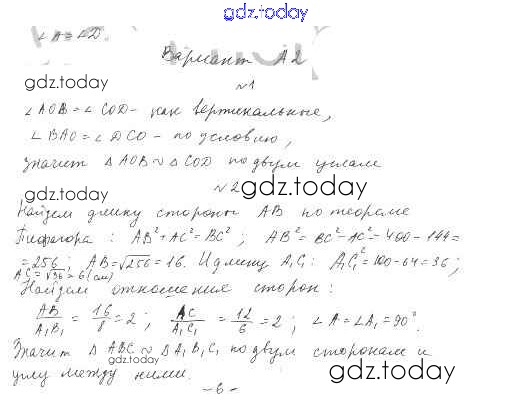 gdz.today
∠A = ∠D.
Вариант А2
gdz.today
№1
∠AOB = ∠COD - как вертикальные,
∠BAO = ∠DCO - по условию,
Значит △AOB ∾ △COD по двум углам
gdz.today
№2
gdz.today
Найдем длину стороны AB по теореме
Пифагора: AB² + AC² = BC²; AB² = BC² - AC² = 400 - 144 =
= 256; AB = √256 = 16. И длину A₁C₁: A₁C₁² = 100 - 64 = 36;
A₁C₁ = √36 = 6 (см)
Найдем отношения сторон:
AB/A₁B₁ = 16/8 = 2; AC/A₁C₁ = 12/6 = 2; ∠A = ∠A₁ = 90°.
Значит △ABC ∾ △A₁B₁C₁ по двум сторонам и
углу между ними.
gdz.today
- 6 -
gdz.today